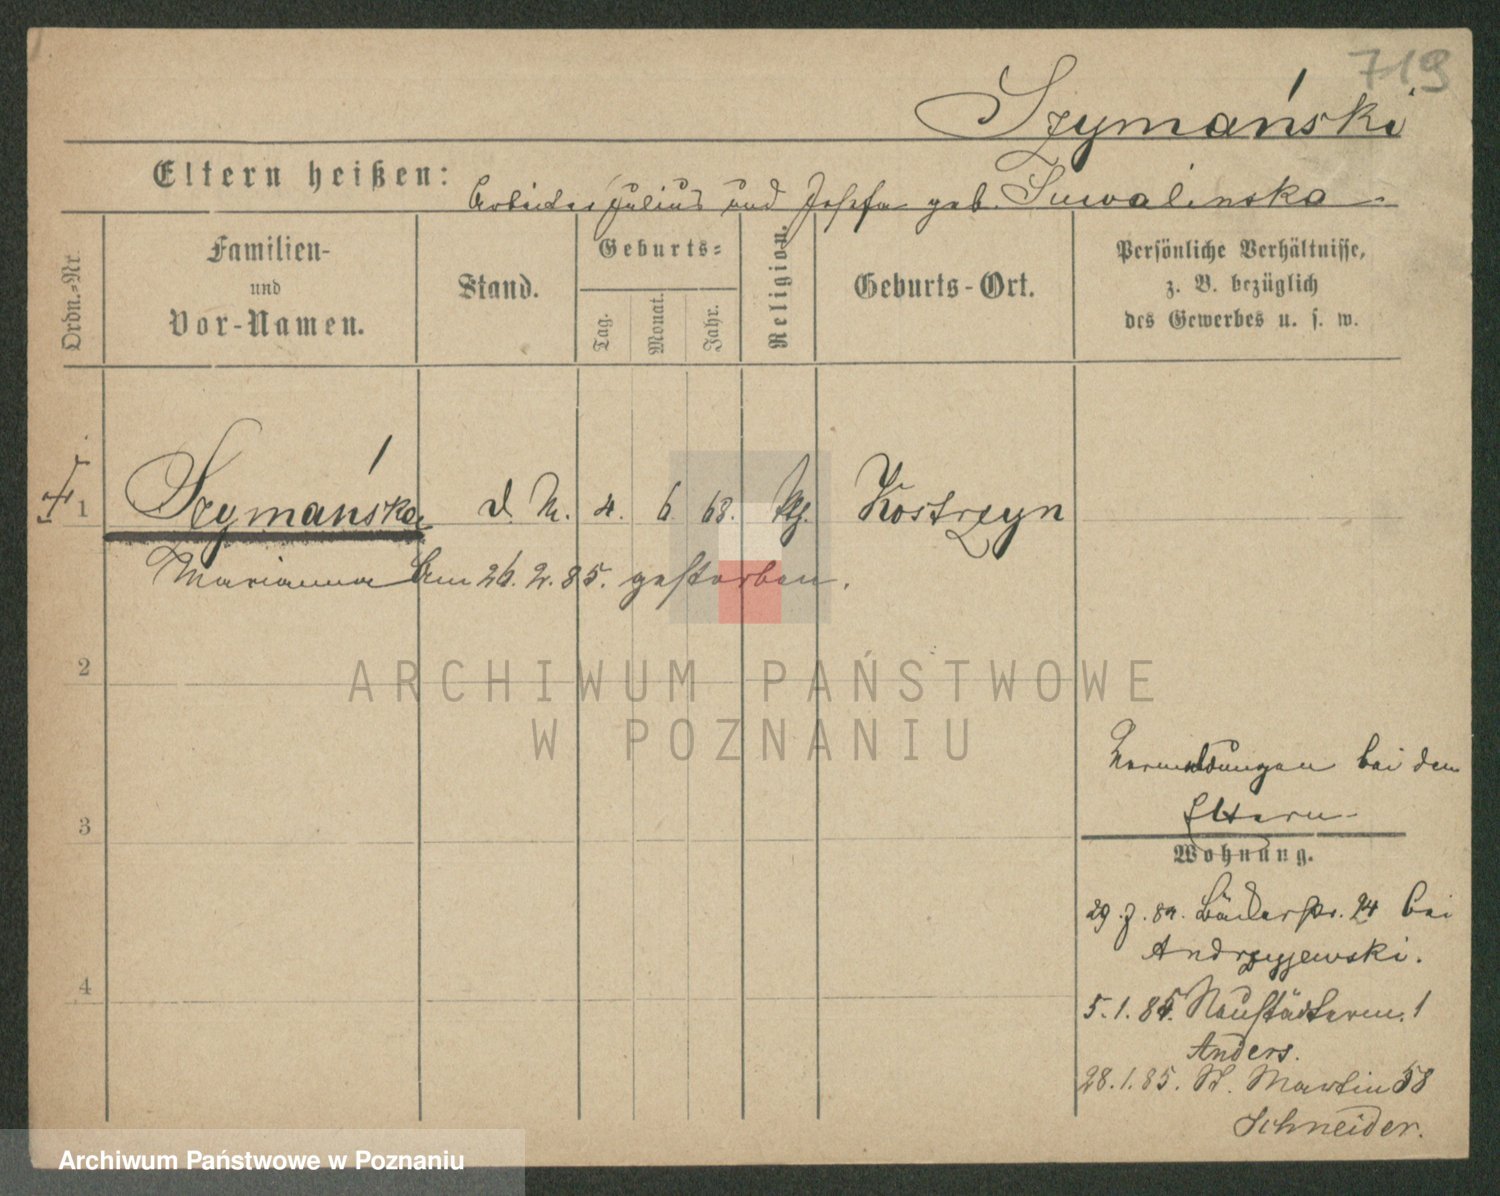 719
Szymański
Eltern heißen: Arbeiter Julius und Josefa geb. Suwalinska
Ordn.-Nr.
Familien-
und
Vor-Namen.
Stand.
Geburts-
Tag.
Monat.
Jahr.
Religion.
Geburts-Ort.
Persönliche Verhältnisse,
z. B. bezüglich
des Gewerbes u. s. w.
1 Szymańska d. M. 4. 6. 68. Kth. Kostrzyn
Marianna Am 26. 2. 85. gestorben.
2
ARCHIWUM PAŃSTWOWE
W POZNANIU
3
bei den
Eltern
Wohnung.
29. 7. 84. Bäckerstr. 24 bei
Andrzyjewski.
4
5. 1. 85. Neustädterm. 1
Anders.
28. 1. 85. St. Martin 58
Schneider.
Archiwum Państwowe w Poznaniu